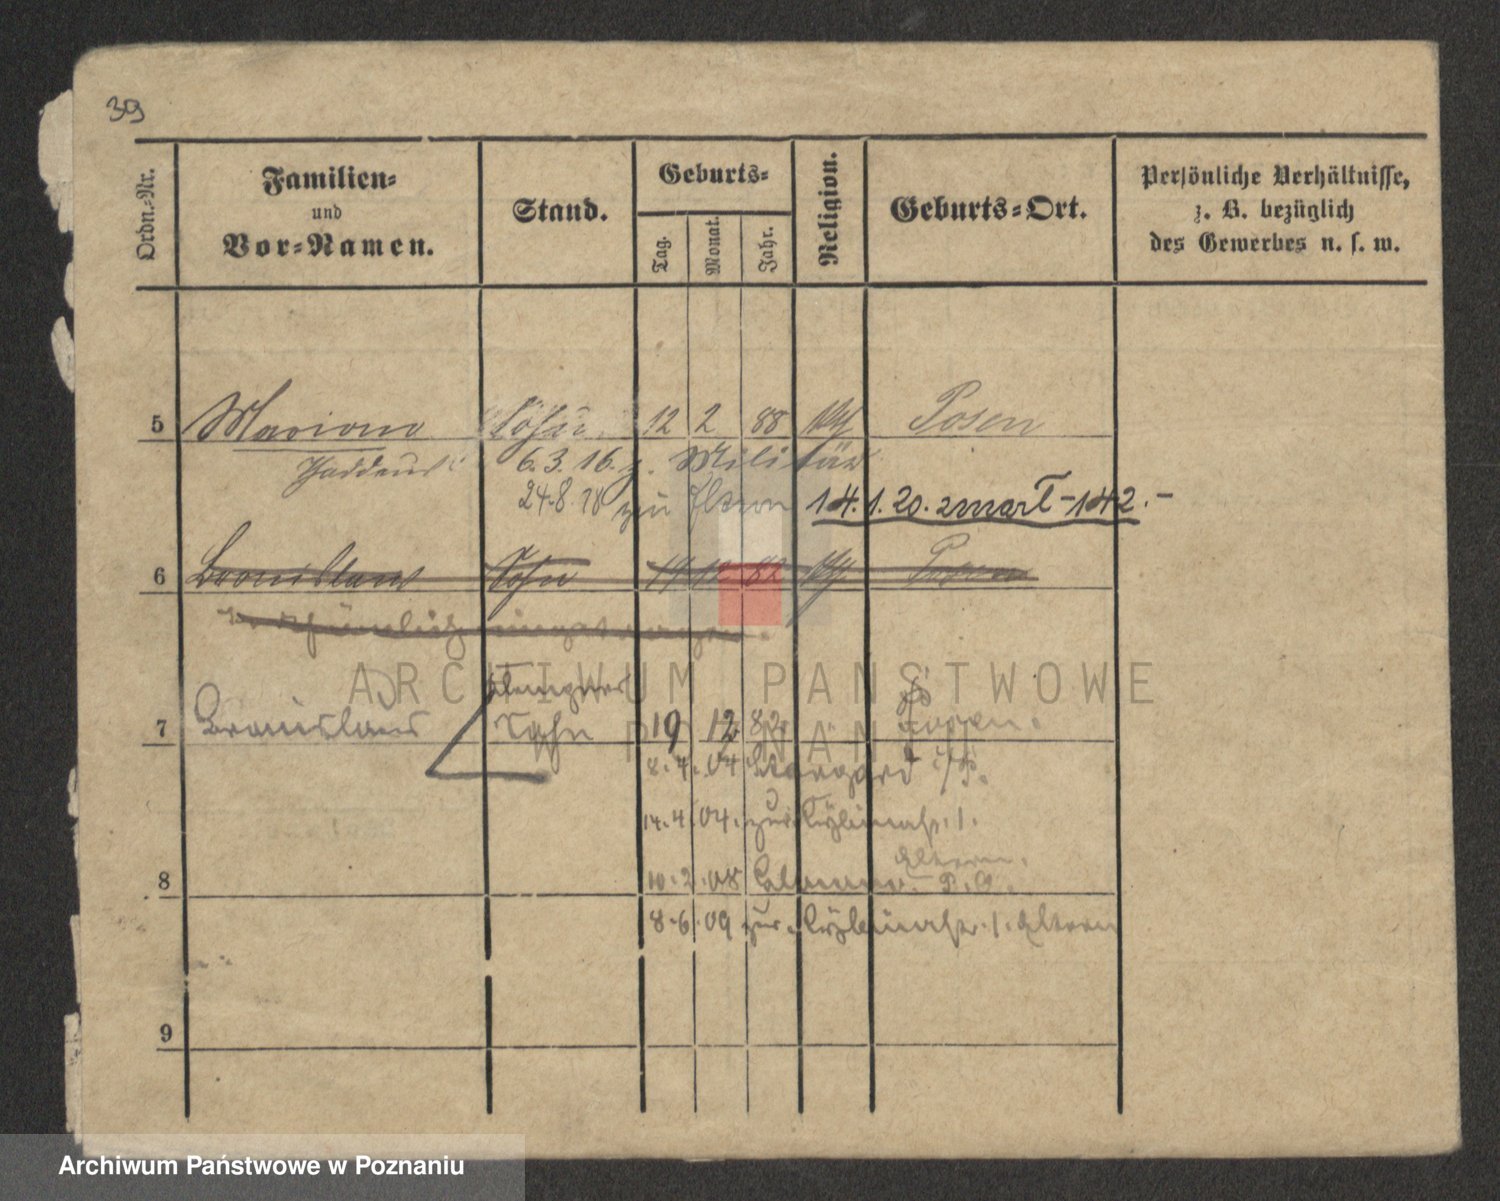 39
Ordn.-Nr.
Familien-
und
Vor-Namen.
Stand.
Geburts-
Tag.
Monat.
Jahr.
Religion.
Geburts-Ort.
Persönliche Verhältnisse,
z. B. bezüglich
des Gewerbes u. s. w.
5 Marian Sohn 12 2 88 kth Posen
Thaddeus 6.3.16. z. Militär
24.8.18 zu Eltern 14.1.20. zmarł - 142.-
6 Bronislaus Sohn 19 12 82 kth Posen
ARCHIWUM PAŃSTWOWE
W POZNANIU
7 Bronislaus Sohn 19 12 82 Posen.
8.4.04 Stargard i/P.
14.4.04. zur.
8 10.2.08
8.6.09 zur. Eltern
9
Archiwum Państwowe w Poznaniu